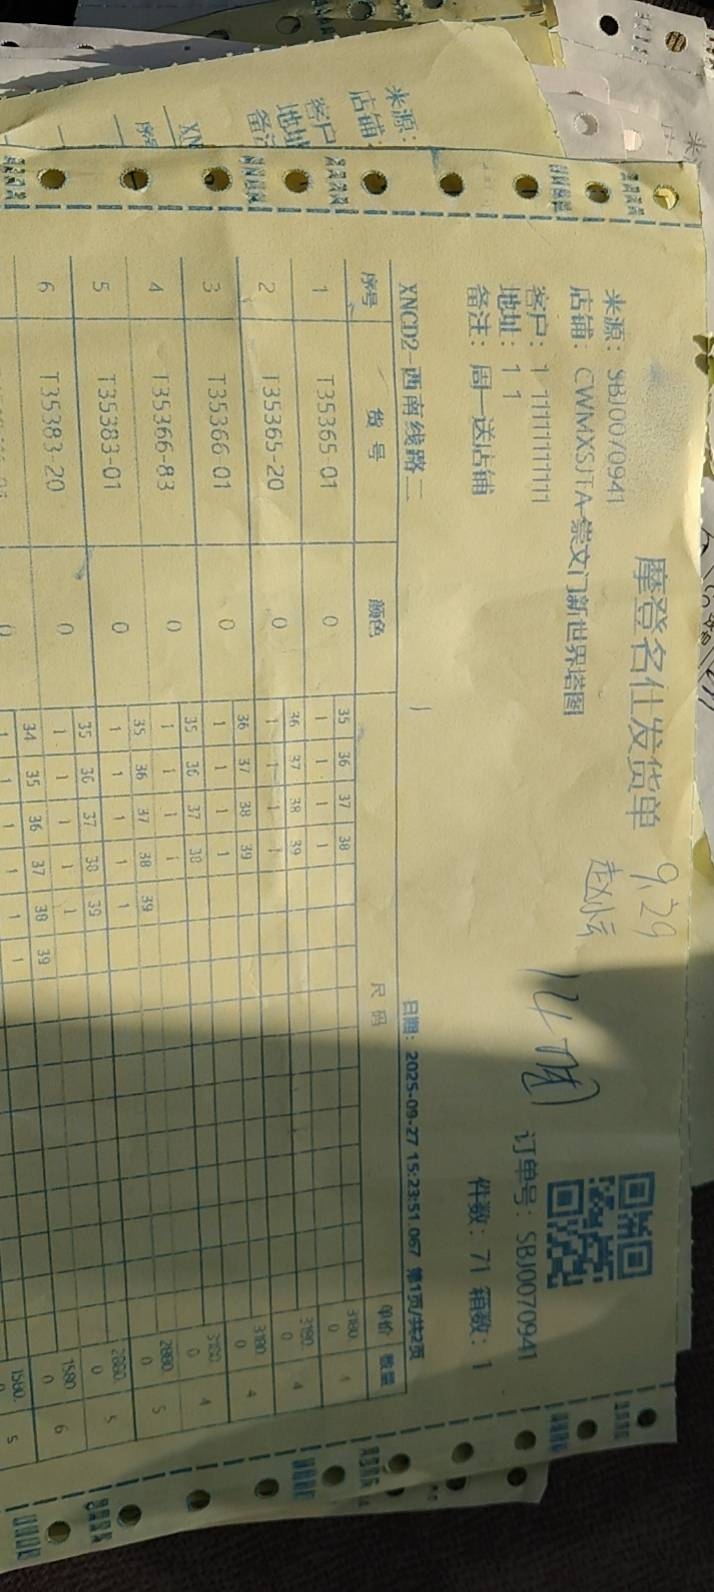 摩登名仕发货单
9.29
赵小云
来源：SBJ0070941
店铺：CWMXSJTA-崇文门新世界塔图
客户：1 1111111111
地址：1 1
备注：周一送店铺
订单号：SBJ0070941
件数：71 箱数：1
XNCD2-西南线路二
日期：2025-09-27 15:23:51.067 第1页/共2页
序号 货号 颜色 尺码 单价 数量
1 T35365-01 0 35 36 37 38 3180.0 4
1 1 1 1
2 T35365-20 0 36 37 38 39 3180.0 4
1 1 1 1
3 T35366-01 0 36 37 38 39 3180.0 4
1 1 1 1
4 T35366-83 0 35 36 37 38 3180.0 4
1 1 1 1
5 T35383-01 0 35 36 37 38 39 2880.0 5
1 1 1 1 1
6 T35383-20 0 35 36 37 38 39 2880.0 5
1 1 1 1 1
34 35 36 37 38 39 1580.0 6
1 1 1 1 1
1580. 5
来源：
店铺：
客户
地址
备注
XN
序号